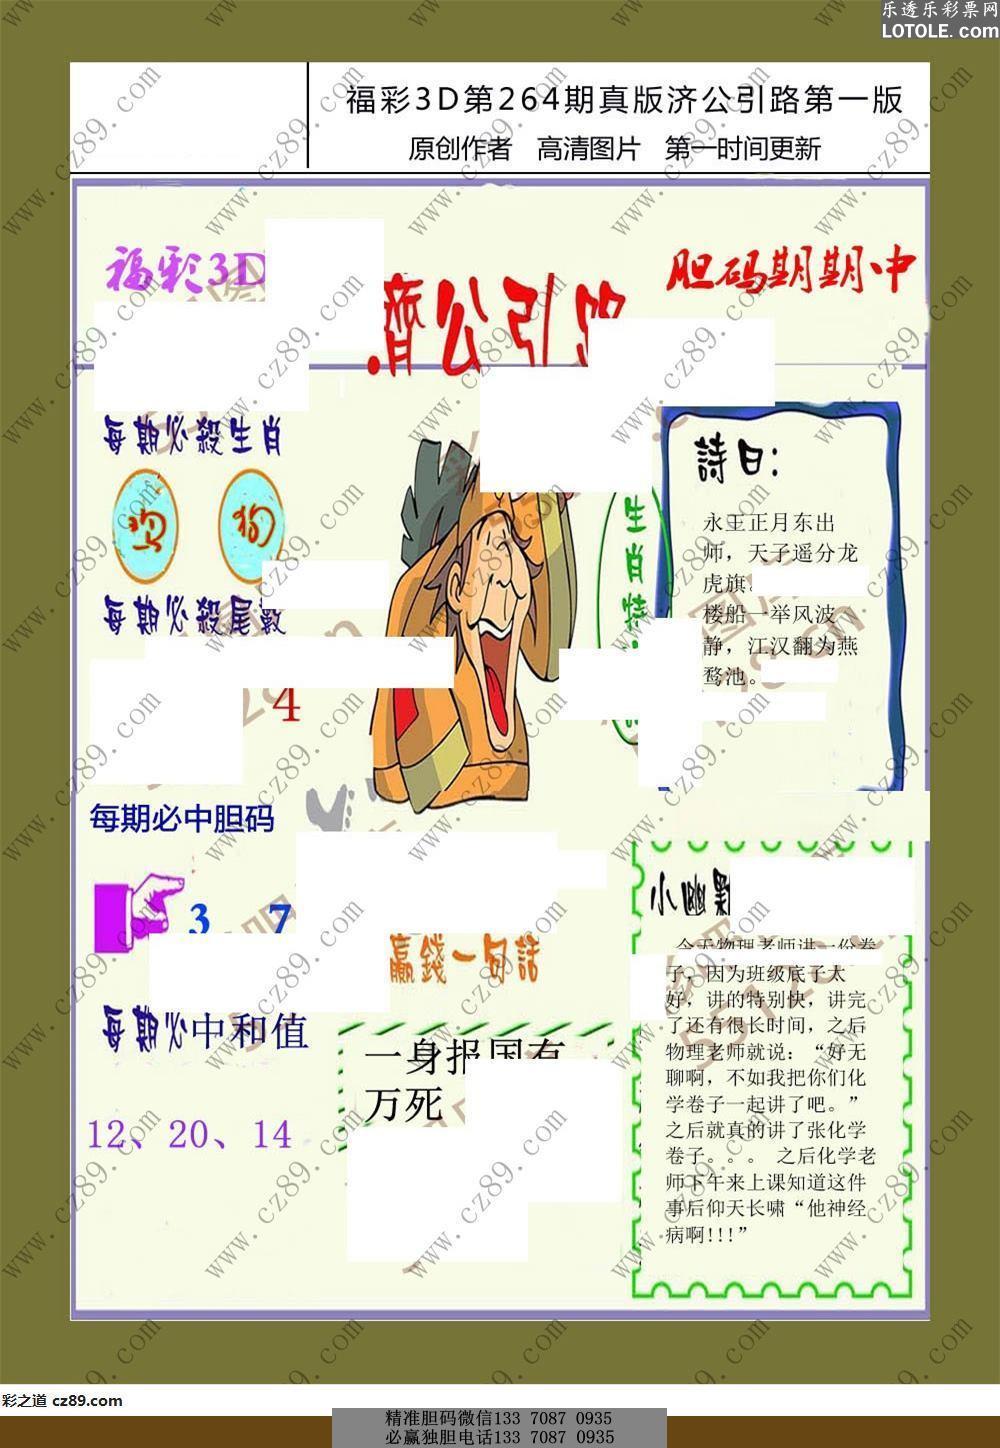 乐透乐彩票网
LOTOLE.com
福彩3D第264期真版济公引路第一版
原创作者 高清图片 第一时间更新
福彩3D
胆码期期中
濟公引
每期必殺生肖
鸡 狗
每期必殺尾數
4
生肖特
詩曰：
永王正月东出
师，天子遥分龙
虎旗
楼船一举风波
静，江汉翻为燕
鹜池。
每期必中胆码
3、7
赢錢一句話
一身报国有
万死
每期必中和值
12、20、14
小幽默
今天物理老师讲一份卷
子，因为班级底子太
好，讲的特别快，讲完
了还有很长时间，之后
物理老师就说：“好无
聊啊，不如我把你们化
学卷子一起讲了吧。”
之后就真的讲了张化学
卷子。。。 之后化学老
师下午来上课知道这件
事后仰天长啸“他神经
病啊!!!”
www.cz89.com
彩之道 cz89.com
精准胆码微信133 7087 0935
必赢独胆电话133 7087 0935